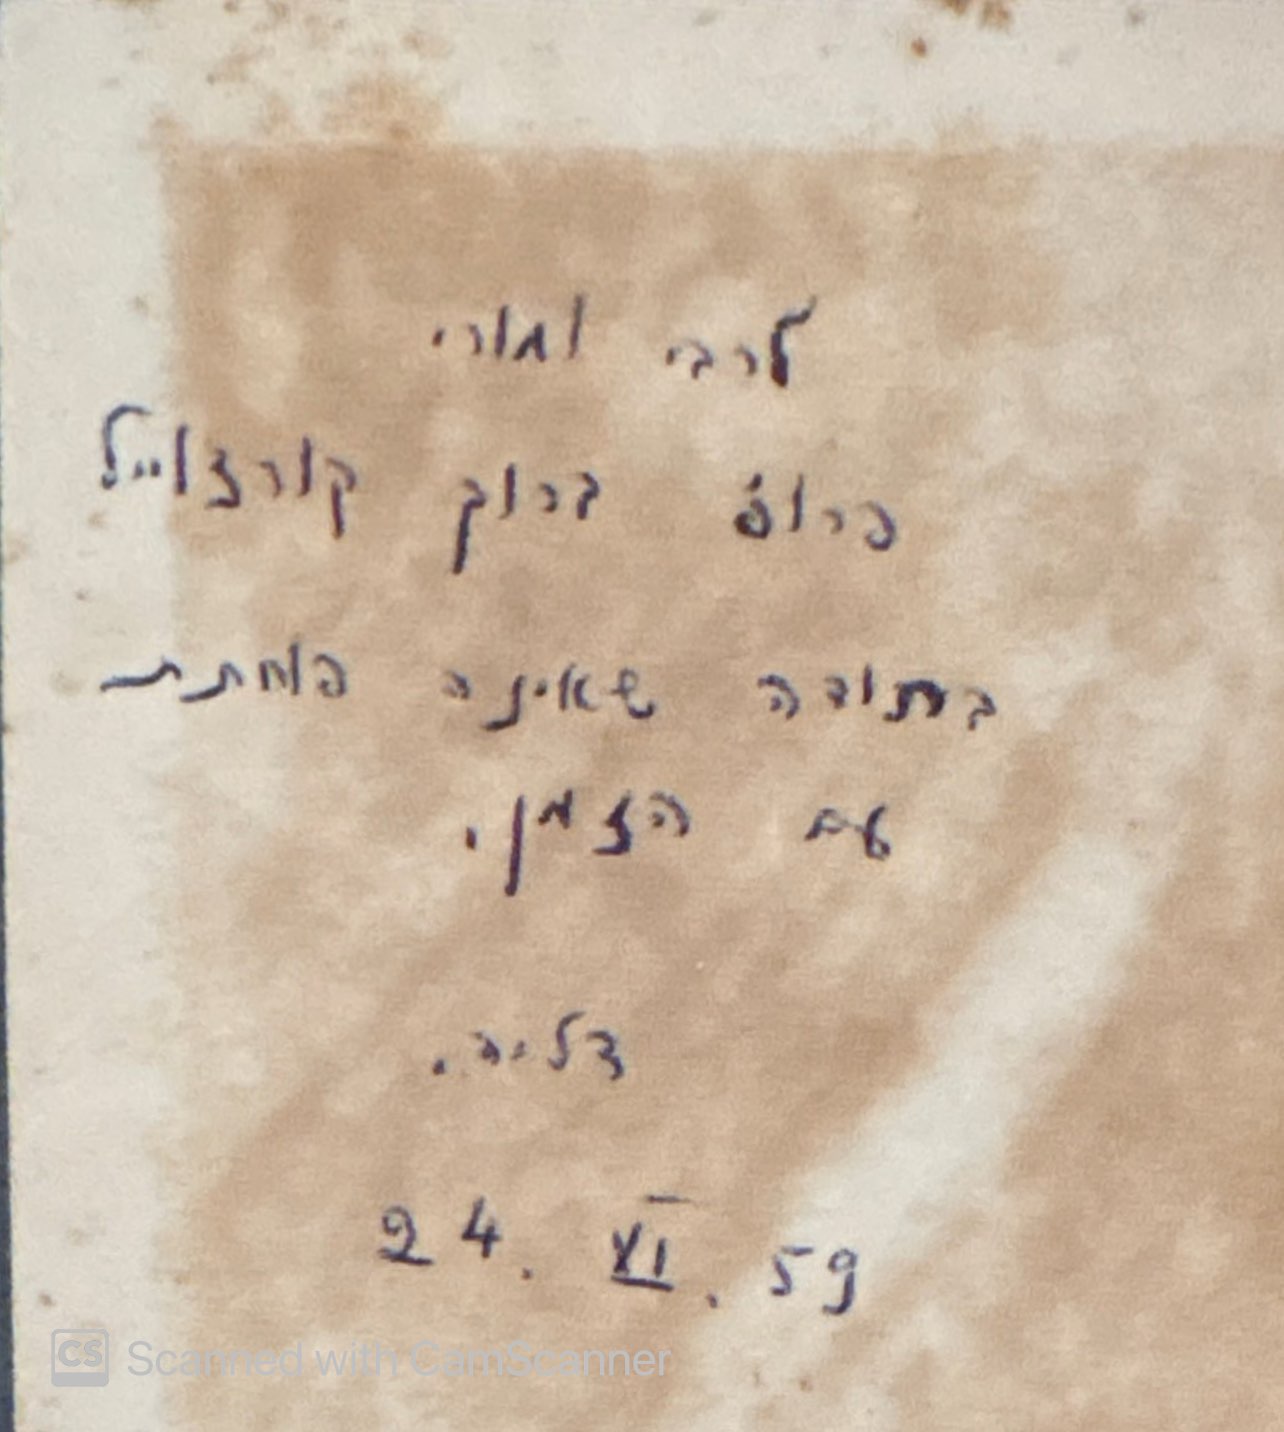 לרבי ומורי
פרופ׳ ברוך קורצווייל
בתודה שאינה פוחתת
עם הזמן.
דליה.
24. XI. 59
CS Scanned with CamScanner